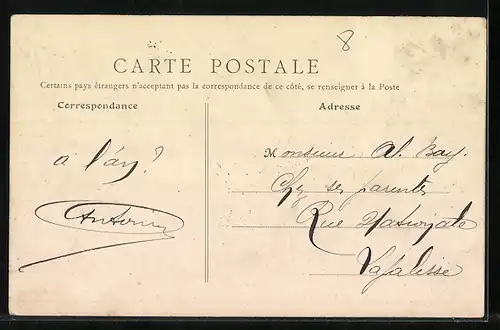 8
CARTE POSTALE
Certains pays étrangers n'acceptant pas la correspondance de ce côté, se renseigner à la Poste
Correspondance
Adresse
a l'an ?
Antonin
Monsieur Al. Bay.
Chez ses parents
Rue Nationale
Lapalisse